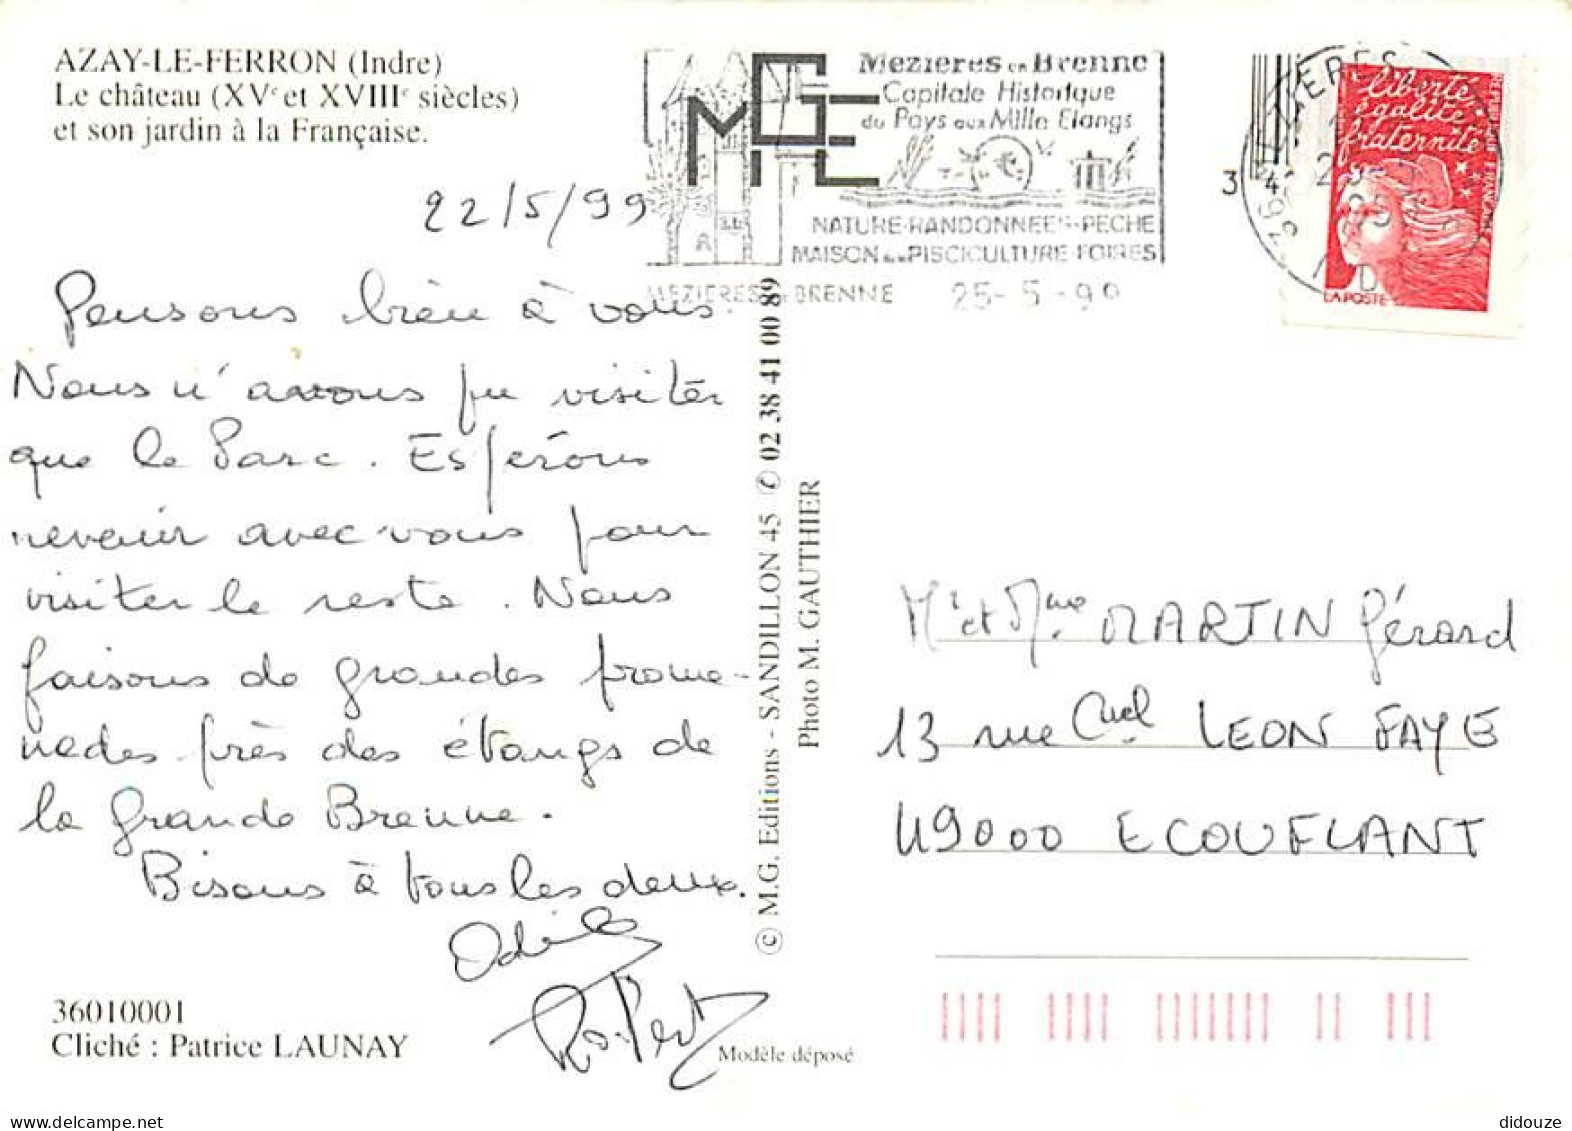 AZAY-LE-FERRON (Indre)
Le château (XVe et XVIIIe siècles)
et son jardin à la Française.
22/5/99
Pensons bien à vous.
Nous n'avons pu visiter
que le Parc. Espérons
revenir avec vous pour
visiter le reste. Nous
faisons de grandes prome-
nades près des étangs de
la grande Brenne.
Bisous à tous les deux.
Odile
Robert
36010001
Cliché : Patrice LAUNAY
Modèle déposé
© M.G. Editions - SANDILLON 45 ✆ 02 38 41 00 89
Photo M. GAUTHIER
Mezieres en Brenne
Capitale Historique
du Pays aux Mille Etangs
NATURE-RANDONNEES-PECHE
MAISON de la PISCICULTURE-FOIRES
MEZIERES EN BRENNE 25-5-99
34
36 MEZIERES
liberté
égalité
fraternité
REPUBLIQUE FRANÇAISE
LA POSTE
Mr et Mme MARTIN Gérard
13 rue LEON FAYE
49000 ECOUFLANT
didouze